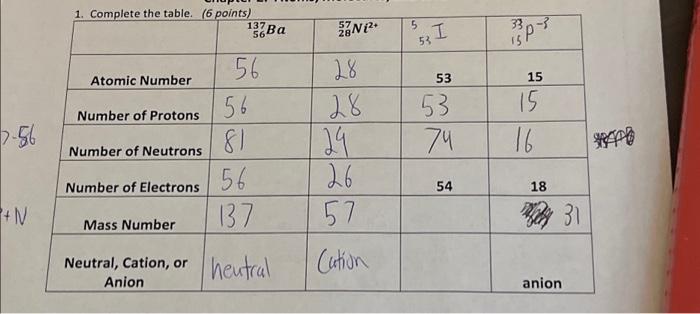 1. Complete the table. (6 points)
¹³⁷₅₆Ba ⁵⁷₂₈Ni²⁺ ⁵₅₃I ³³₁₅P⁻³
Atomic Number 56 28 53 15
Number of Protons 56 28 53 15
-56 Number of Neutrons 81 29 74 16
Number of Electrons 56 26 54 18
+N Mass Number 137 57 31
Neutral, Cation, or
Anion neutral Cation anion